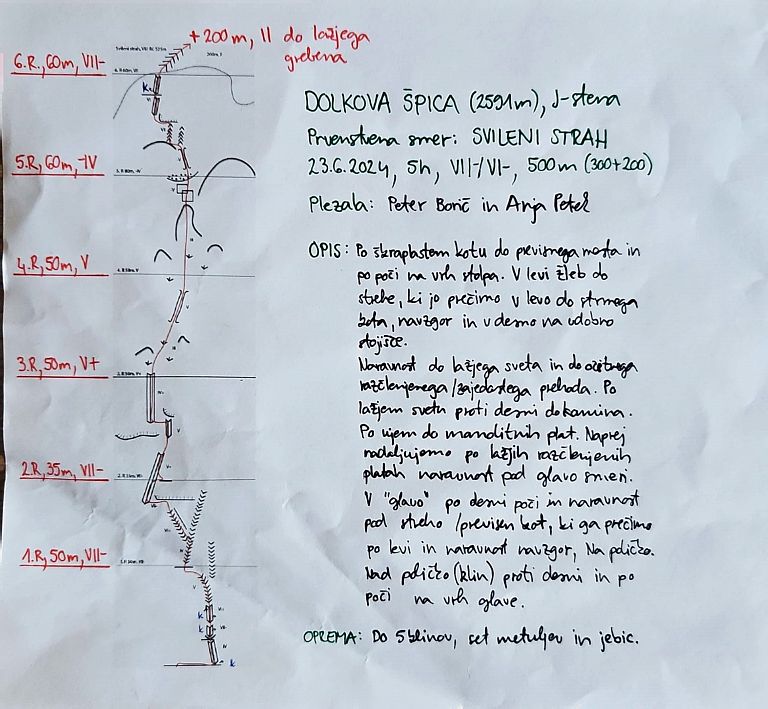 + 200 m, II do lažjega
grebena
6.R., 60m, VII-
5.R, 60m, -IV
4.R, 50m, V
3.R, 50m, V+
2.R, 35m, VII-
1.R, 50m, VII-
DOLKOVA ŠPICA (2591m), J-stena
Prvenstvena smer: SVILENI STRAH
23.6.2024, 5h, VII-/VI-, 500m (300+200)
Plezala: Peter Borič in Anja Petek
OPIS: Po škraplastem kotu do previsnega mosta in
po poči na vrh stolpa. V levi žleb do
strehe, ki jo prečimo v levo do strmega
kota, navzgor in v desno na udobno
stojišče.
Naravnost do lažjega sveta in do očitnega
razčlenjenega/zajedastega prehoda. Po
lažjem svetu proti desni do kamina.
Po njem do plat. Naprej
nadaljujemo po lažjih razčlenjenih
platah naravnost pod glavo smeri.
V "glavo" po desni poči in naravnost
pod streho /previsen kot, ki ga prečimo
po levi in naravnost navzgor, Na poličko.
Nad poličko (klin) proti desni in po
poči na vrh glave.
OPREMA: Do 5 klinov, set metuljev in jebic.